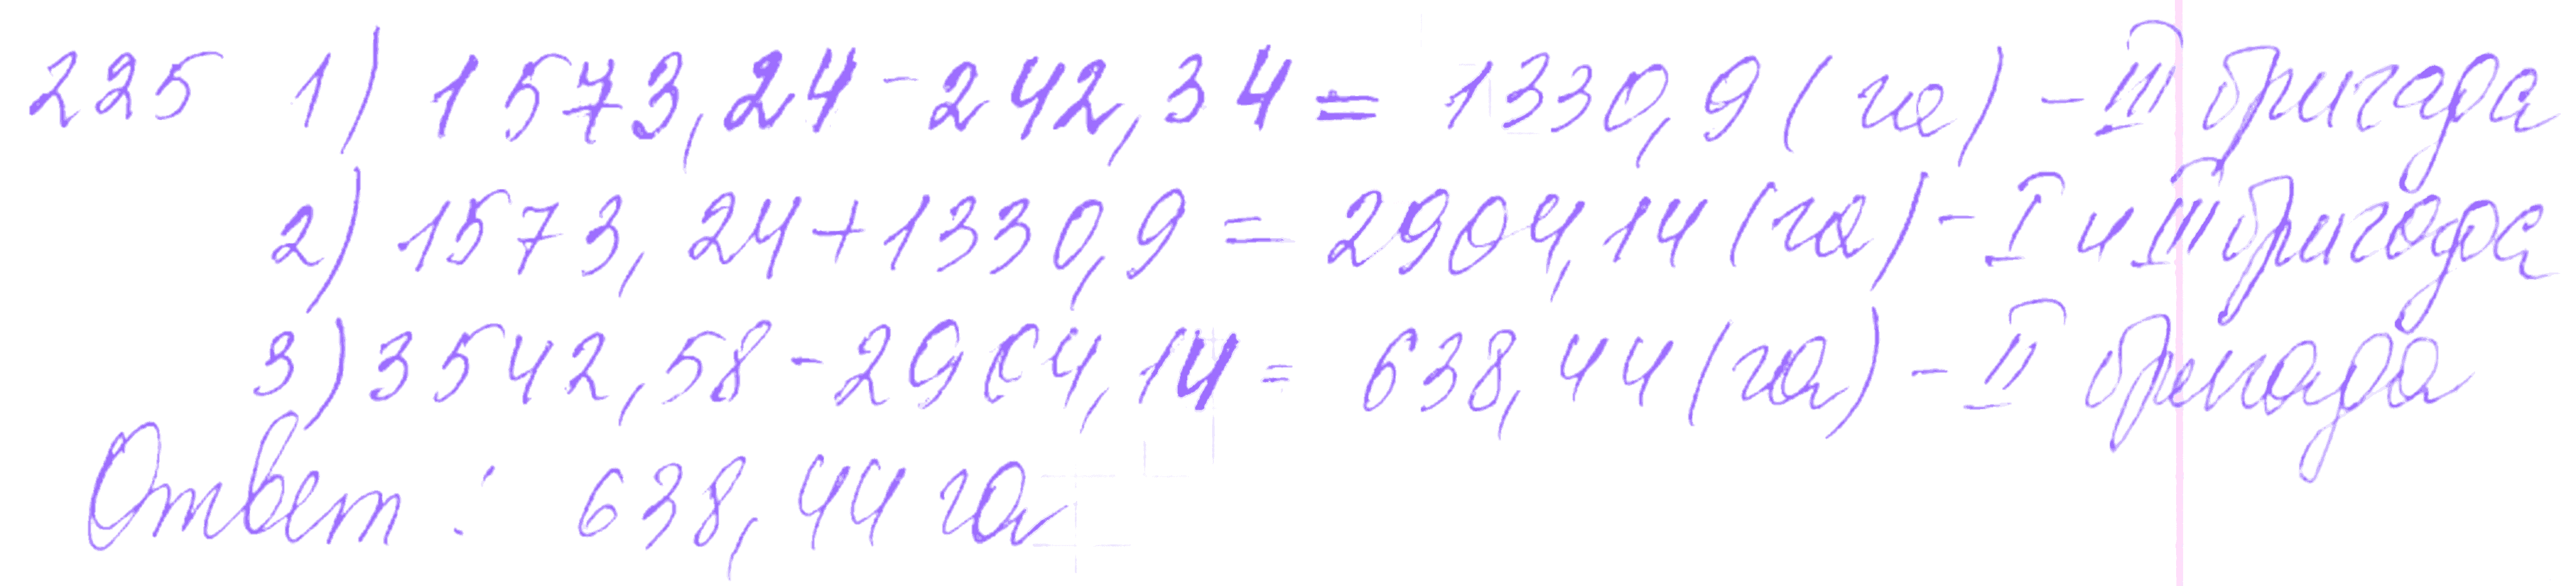 225 1) 1573,24 - 242,34 = 1330,9 (га) - III бригада
2) 1573,24 + 1330,9 = 2904,14 (га) - I и III бригада
3) 3542,58 - 2904,14 = 638,44 (га) - II бригада
Ответ: 638,44 га